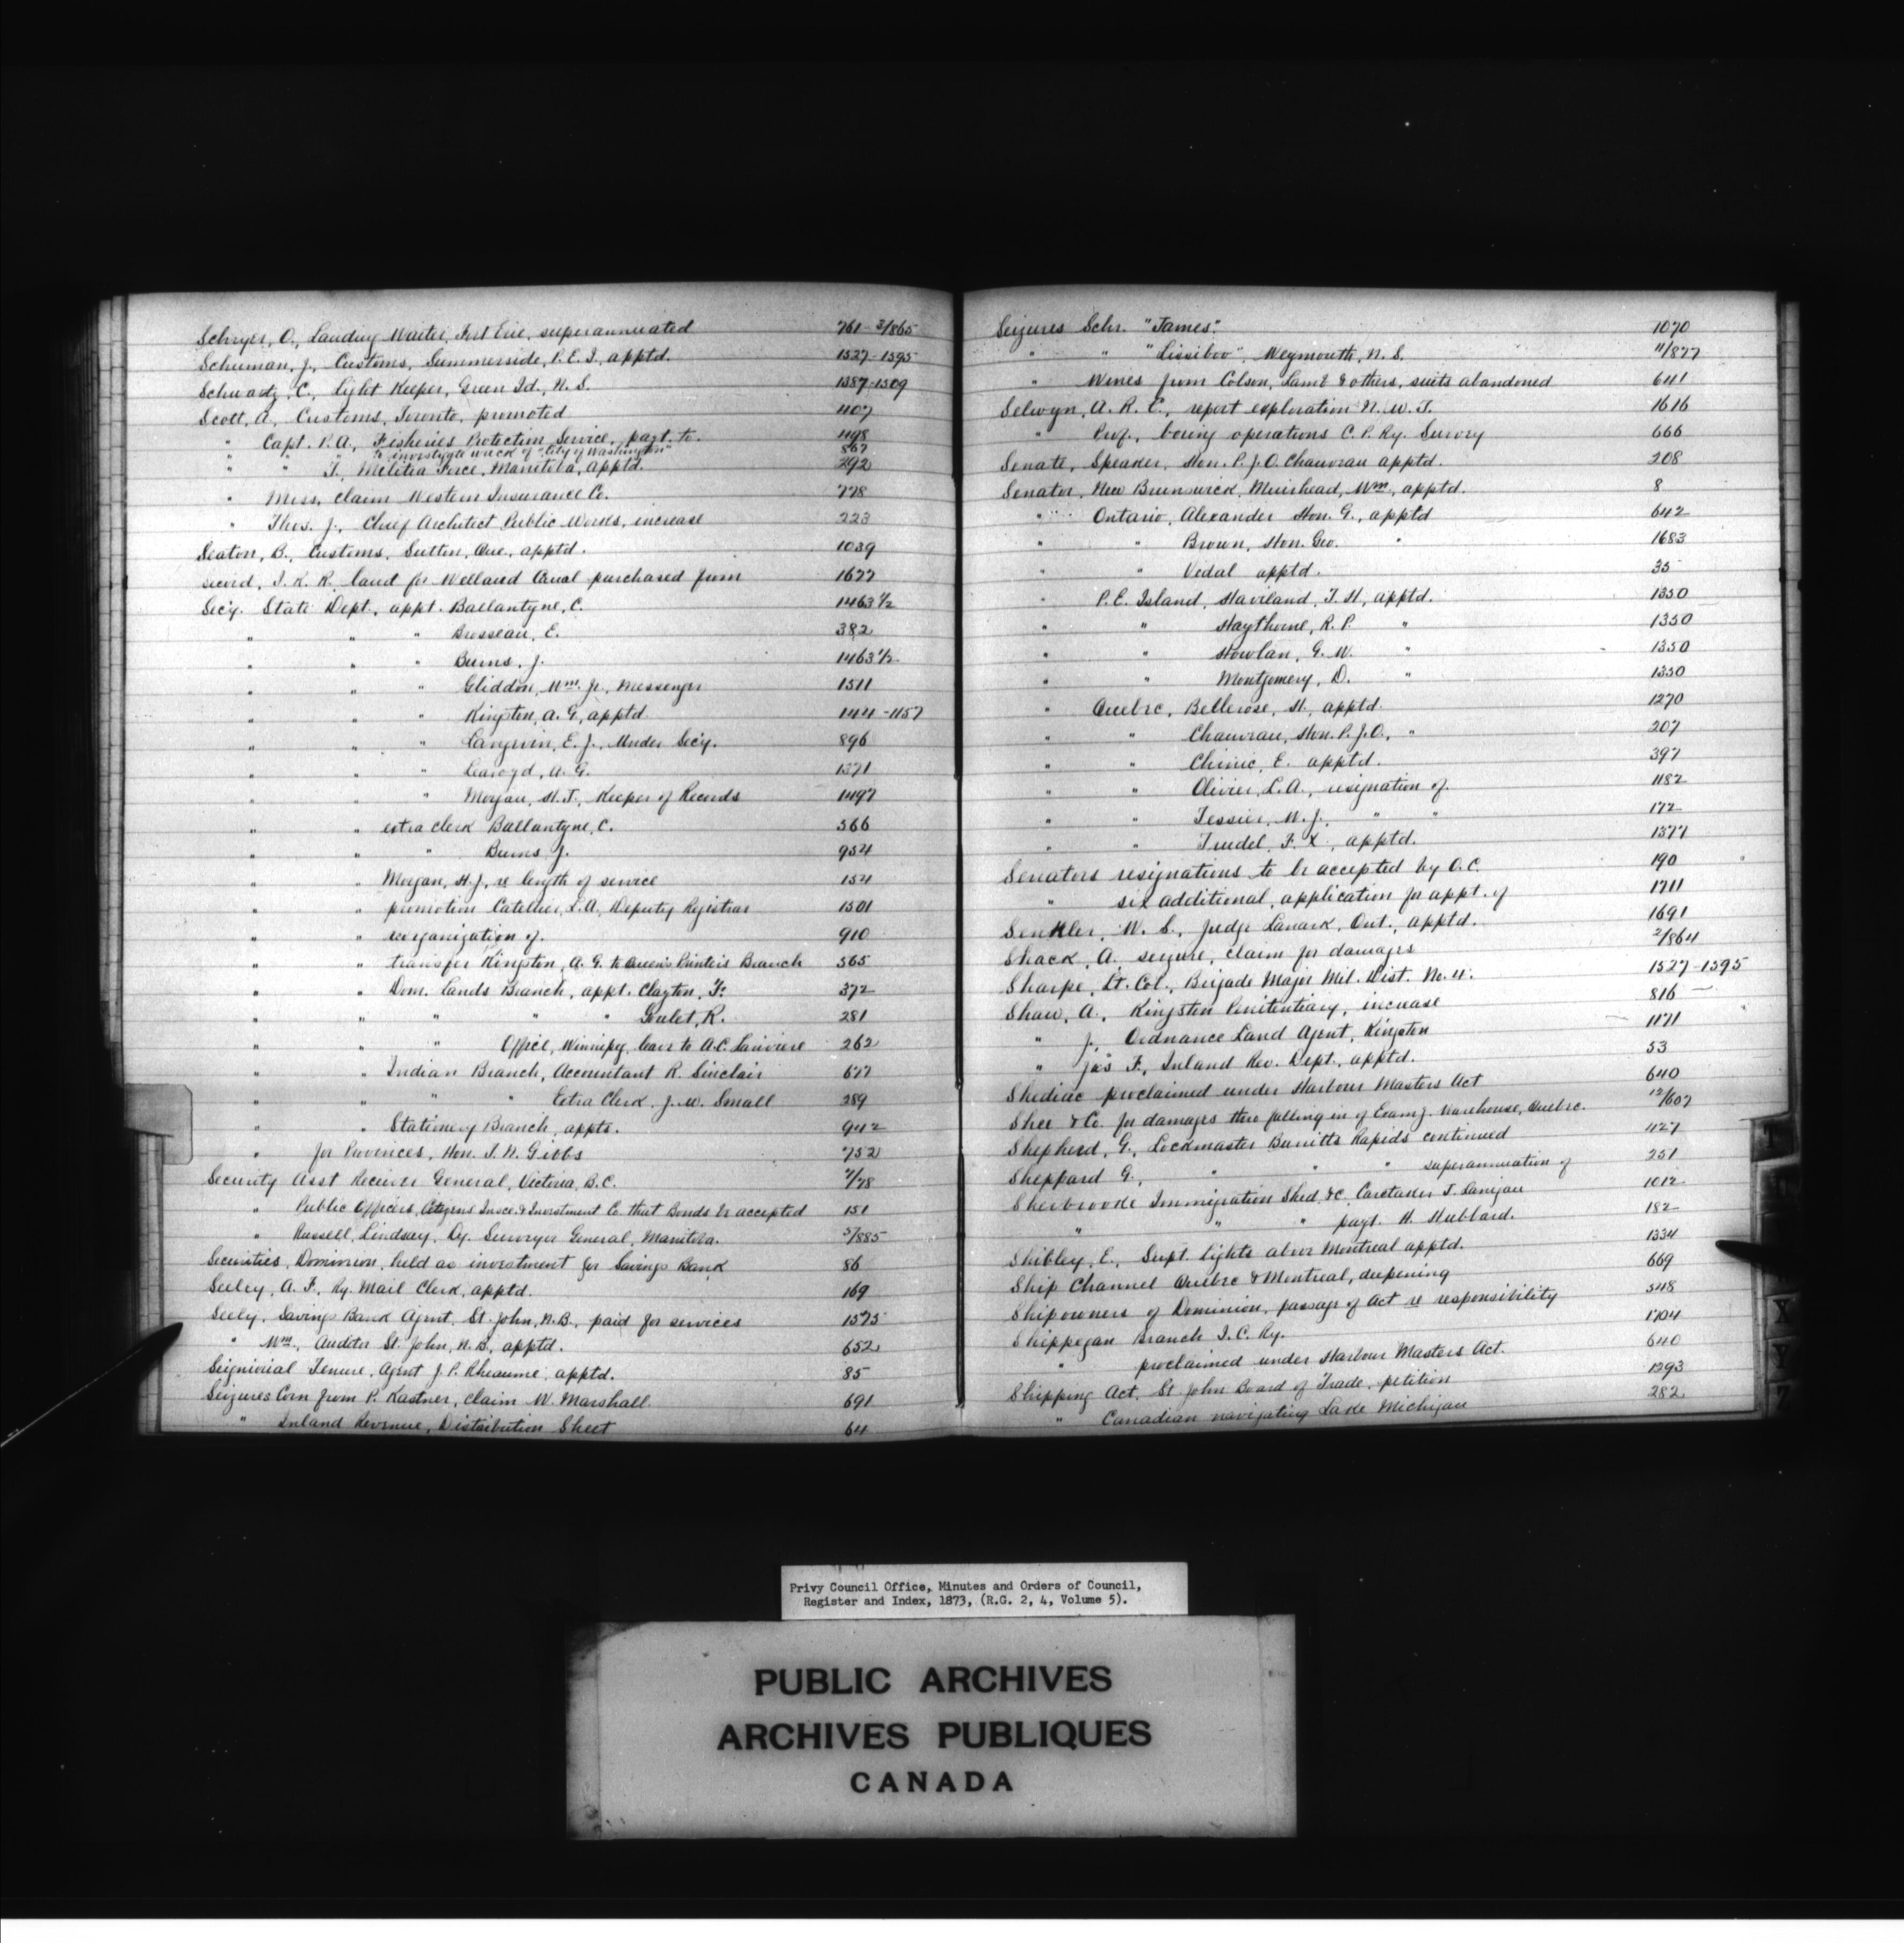 Schryer, O., Landing Waiter, Fort Erie, superannuated 761 - 3/865
Schuman, J., Customs, Summerside, P.E.I., apptd. 1527-1595
Schwartz, C., Light Keeper, Green Id., N.S. 1387-1509
Scott, A., Customs, Toronto, promoted 407
" Capt. P.A., Fisheries Protection Service, payt. to. 498
" " " to investigate wreck of "City of Washington" 867
" " T., Militia Force, Manitoba, apptd. 292
" Miss, claim Western Insurance Co. 778
" Thos. J., Chief Architect Public Works, increase 223
Seaton, B., Customs, Sutton, Que., apptd. 1039
Secord, I. K. R. land for Welland Canal purchased from 1677
Secy. State Dept., appt. Ballantyne, C. 1463 1/2
" " " Brosseau, E. 382
" " " Burns, J. 1463 1/2
" " " Gliddon, Wm. Jr., Messenger 1511
" " " Kingston, A. G., apptd. 144-1157
" " " Langevin, E. J., Under Secy. 896
" " " Learoyd, A. G. 1371
" " " Morgan, H.J., Keeper of Records 1497
" " extra clerk Ballantyne, C. 366
" " " Burns J. 954
" " Morgan, H.J., re length of service 154
" " promotion Catellier, L.A., Deputy Registrar 1501
" " reorganization of. 910
" " transfer Kingston, A. G. to Queen's Printer's Branch 565
" " Dom. Lands Branch, appt. Clayton, F. 372
" " " " " Goulet, R. 281
" " " Office, Winnipeg, leave to A.C. Lariviere 262
" " Indian Branch, Accountant R. Sinclair 677
" " " " Extra Clerk, J.W. Small 289
" " Stationery Branch, appts. 942
" for Provinces, Hon. T. N. Gibbs 752
Security Asst Receiver General, Victoria, B.C. 7/78
" Public Officers, Citizens Insce. & Investment Co. that Bonds be accepted 151
" Russell, Lindsay, Dy. Surveyor General, Manitoba. 5/885
Securities, Dominion, held as investment for Savings Bank 86
Seeley, A. F., Ry. Mail Clerk, apptd. 169
Seely, Savings Bank Agent, St. John, N.B., paid for services 1575
" Wm., Auditor St. John, N.B., apptd. 652
Seigniorial Tenure, Agent J. P. Rheaume, apptd. 85
Seizures Corn from P. Kastner, claim W. Marshall 691
" Inland Revenue, Distribution Sheet 64
Seizures Schr. "James". 1070
" " "Lissiboo", Weymouth, N. S. 11/877
" Wines from Colson, Lamb & others, suits abandoned 641
Selwyn, A. R. C., report exploration N.W.T. 1616
" Prof., boring operations C. P. Ry. Survey 666
Senate, Speaker, Hon. P. J. O. Chauveau apptd. 208
Senator, New Brunswick, Muirhead, Wm., apptd. 8
" Ontario, Alexander Hon. G., apptd 642
" " Brown, Hon. Geo. " 1683
" " Vidal apptd. 35
" P.E. Island, Haviland, T. H., apptd. 1350
" " Haythorne, R. P. " 1350
" " Howlan, G. W. " 1350
" " Montgomery, D. " 1350
" Quebec, Bellerose, H., apptd. 1270
" " Chauveau, Hon. P. J. O., " 207
" " Chinic, E. apptd. 397
" " Olivier, L.A., resignation of. 1182
" " Tessier, U. J., " " 172
" " Trudel, F. X., apptd. 1377
Senators resignations to be accepted by O.C. 190
" six additional, application for appt. of 1711
Senkler, W. S., Judge Lanark, Ont., apptd. 1691
Shack, A. seizure, claim for damages 2/864
Sharpe, Lt. Col., Brigade Major Mil. Dist. No. 4. 1527-1595
Shaw, A., Kingston Penitentiary, increase 816
" J., Ordnance Land Agent, Kingston 1171
" Jas F., Inland Rev. Dept., apptd. 53
Shediac proclaimed under Harbour Masters Act 640
Shee & Co. for damages thro falling in of Examg. warehouse, Quebec. 12/607
Shepherd, G., Lockmaster Burritts Rapids continued 1127
Sheppard G., " " " superannuation of 251
Sherbrooke Immigration Shed &c. Caretaker T. Lanigan 1012
" " " payt. H. Hubbard. 182
Shibley, E., Supt. lights above Montreal apptd. 1334
Ship Channel Quebec & Montreal, deepening 669
Shipowners of Dominion, passage of Act re responsibility 548
Shippegan Branch I. C. Ry. 1704
" proclaimed under Harbour Masters Act. 640
Shipping Act, St John Board of Trade, petition 1293
" Canadian navigating Lake Michigan 282
T
X
Y
Z
Privy Council Office, Minutes and Orders of Council,
Register and Index, 1873, (R.G. 2, 4, Volume 5).
PUBLIC ARCHIVES
ARCHIVES PUBLIQUES
CANADA